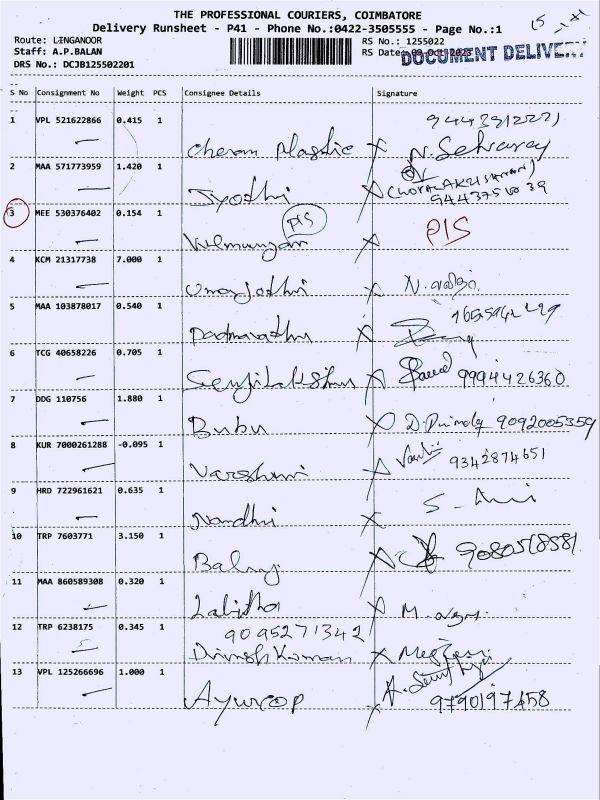 THE PROFESSIONAL COURIERS, COIMBATORE
Delivery Runsheet - P41 - Phone No.:0422-3505555 - Page No.:1
Route: LINGANOOR
RS No.: 1255022
Staff: A.P.BALAN
RS Date: 09-Oct-2023
DOCUMENT DELIVERY
DRS No.: DCJB125502201
S No Consignment No Weight PCS Consignee Details Signature
1 VPL 521622866 0.415 1
Cheran Plastic X N. Selvaraj
2 MAA 571773959 1.420 1
Jyothi X
3 MEE 530376402 0.154 1
PIS
X PIS
4 KCM 21317738 7.000 1
Umajothi X
5 MAA 103878017 0.540 1
Padmavathi X
6 TCG 40658226 0.705 1
X 9994426360
7 DDG 110756 1.880 1
Bubu X 9092005359
8 KUR 7000261288 -0.095 1
Varshini X 9342874651
9 HRD 722961621 0.635 1
Nandhi X
10 TRP 7603771 3.150 1
Balaji X
11 MAA 860589308 0.320 1
Lalitha X
12 TRP 6238175 0.345 1
9095271342
Dinesh Kumar X
13 VPL 125266696 1.000 1
Ayurcop X
9790197458